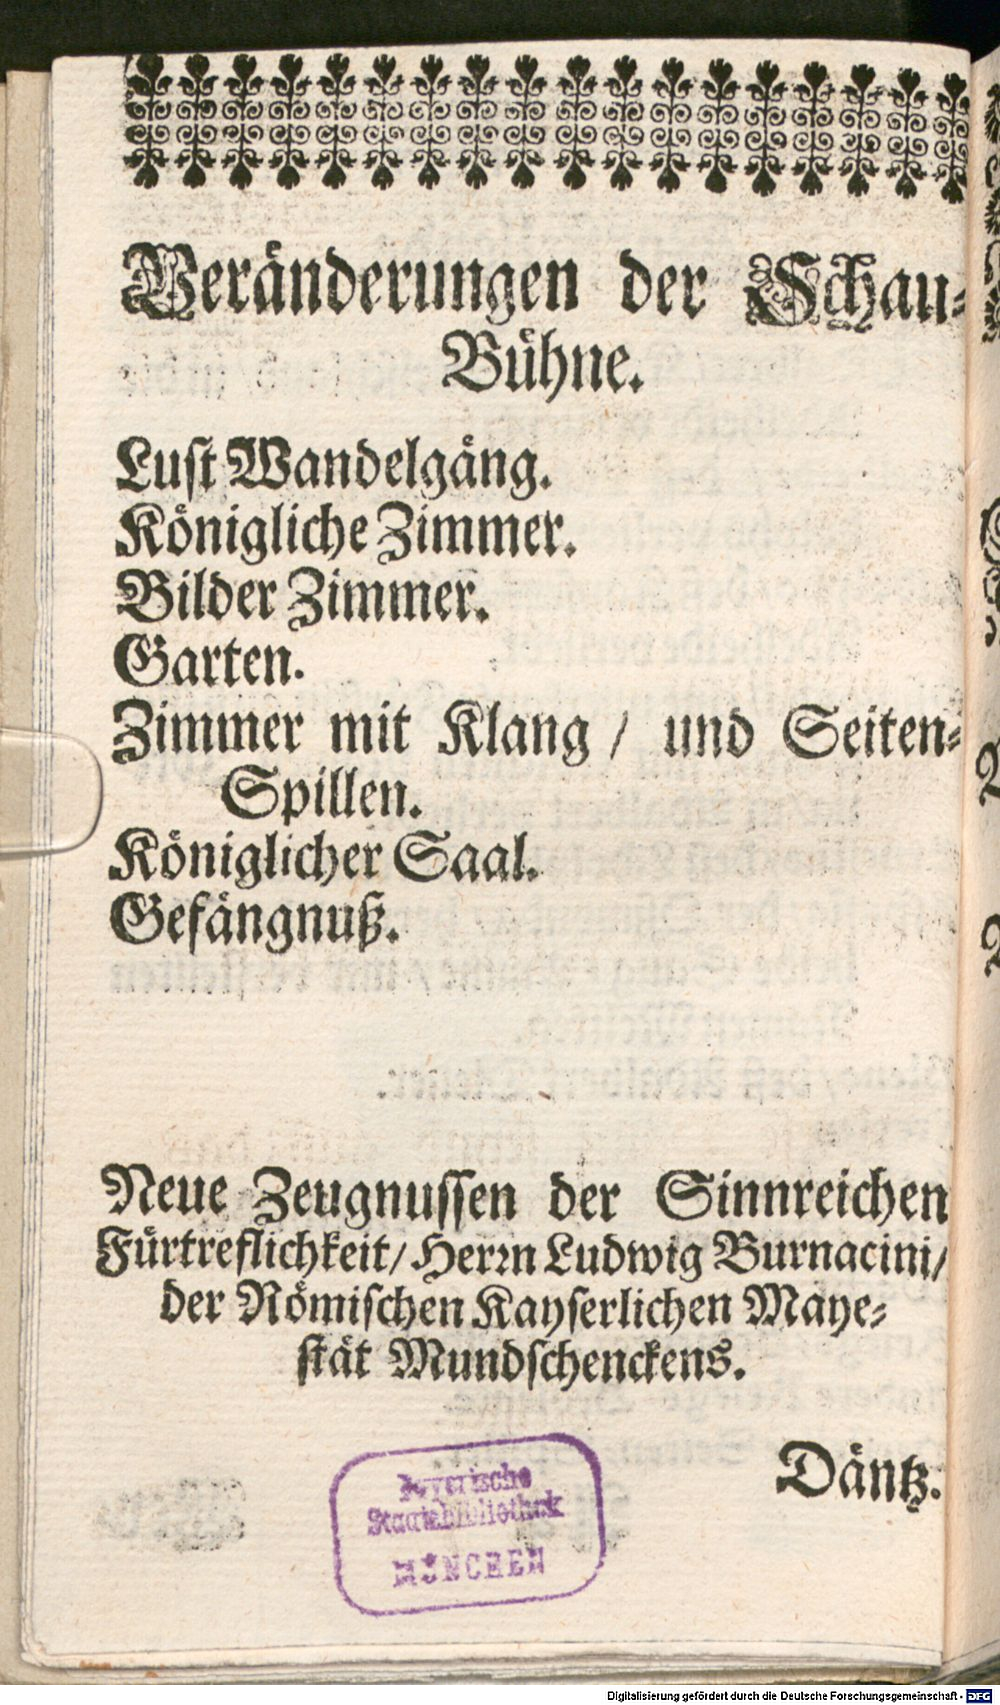 Veränderungen der Schau-
Bühne.
Lust Wandelgäng.
Königliche Zimmer.
Bilder Zimmer.
Garten.
Zimmer mit Klang / und Seiten-
Spillen.
Königlicher Saal.
Gefängnuß.
Neue Zeugnussen der Sinnreichen
Fürtreflichkeit/ Herꝛn Ludwig Burnacini/
der Römischen Kayserlichen Maye-
stät Mundschenckens.
Däntz.
Bayerische
Staatsbibliothek
MÜNCHEN
Digitalisierung gefördert durch die Deutsche Forschungsgemeinschaft - DFG